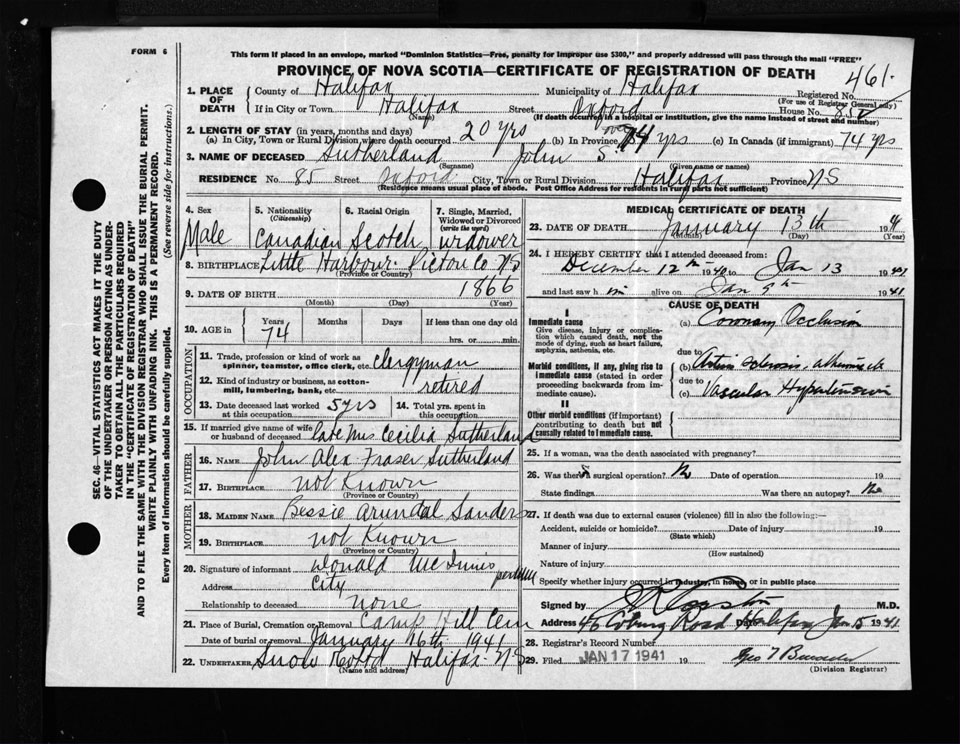 FORM 6
This form if placed in an envelope, marked "Dominion Statistics—Free, penalty for improper use $300," and properly addressed will pass through the mail "FREE"
PROVINCE OF NOVA SCOTIA—CERTIFICATE OF REGISTRATION OF DEATH
461
1. PLACE OF DEATH
County of Halifax Municipality of Halifax Registered No.
(For use of Registrar General only)
If in City or Town Halifax Street Oxford House No. 85
(Name) (If death occurred in a hospital or institution, give the name instead of street and number)
2. LENGTH OF STAY (in years, months and days)
(a) In City, Town or Rural Division where death occurred 20 yrs (b) In Province 74 yrs (c) In Canada (if immigrant) 74 yrs
3. NAME OF DECEASED Sutherland John S.
(Surname) (Given name or names)
RESIDENCE No. 85 Street Oxford City, Town or Rural Division Halifax Province NS
(Residence means usual place of abode. Post Office Address for residents in rural parts not sufficient)
4. Sex Male
5. Nationality (Citizenship) Canadian
6. Racial Origin Scotch
7. Single, Married, Widowed or Divorced (write the word) widower
8. BIRTHPLACE Little Harbour Pictou Co NS
(Province or Country)
9. DATE OF BIRTH 1866
(Month) (Day) (Year)
10. AGE in Years 74 Months Days If less than one day old
hrs. or min.
OCCUPATION
11. Trade, profession or kind of work as spinner, teamster, office clerk, etc. clergyman
12. Kind of industry or business, as cotton-mill, lumbering, bank, etc. retired
13. Date deceased last worked at this occupation 5 yrs
14. Total yrs. spent in this occupation
15. If married give name of wife or husband of deceased late Mrs Cecilia Sutherland
FATHER
16. NAME John Alex Fraser Sutherland
17. BIRTHPLACE not Known
(Province or Country)
MOTHER
18. MAIDEN NAME Bessie Arundal Sanders
19. BIRTHPLACE not Known
(Province or Country)
20. Signature of informant Donald McInnis
Address City
Relationship to deceased none
21. Place of Burial, Cremation or Removal Camp Hill Cem
Date of burial or removal January 16th 1941
22. UNDERTAKER Snow Halifax NS
(Name and address)
MEDICAL CERTIFICATE OF DEATH
23. DATE OF DEATH January 13th 1941
(Month) (Day) (Year)
24. I HEREBY CERTIFY that I attended deceased from:
December 12th 1940 to Jan 13 1941
and last saw him alive on Jan 9th 1941
CAUSE OF DEATH
I
Immediate cause
Give disease, injury or complication which caused death, not the mode of dying, such as heart failure, asphyxia, asthenia, etc.
(a) Coronary Occlusion
due to
Morbid conditions, if any, giving rise to immediate cause (stated in order proceeding backwards from immediate cause).
(b) Arterio sclerosis,
due to
(c) Vascular Hypertension
II
Other morbid conditions (if important) contributing to death but not causally related to immediate cause.
25. If a woman, was the death associated with pregnancy?
26. Was there a surgical operation? No Date of operation 19
State findings Was there an autopsy? No
27. If death was due to external causes (violence) fill in also the following:—
Accident, suicide or homicide? Date of injury 19
(State which)
Manner of injury
(How sustained)
Nature of injury
Specify whether injury occurred in industry, in home, or in public place
Signed by M.D.
Address 46 Coburg Road Halifax Jan 15 1941
28. Registrar's Record Number
29. Filed JAN 17 1941 19
(Division Registrar)
SEC. 46—VITAL STATISTICS ACT MAKES IT THE DUTY OF THE UNDERTAKER OR PERSON ACTING AS UNDERTAKER TO OBTAIN ALL THE PARTICULARS REQUIRED IN THE "CERTIFICATE OF REGISTRATION OF DEATH" AND TO FILE THE SAME WITH THE DIVISION REGISTRAR WHO SHALL ISSUE THE BURIAL PERMIT.
WRITE PLAINLY WITH UNFADING INK. THIS IS A PERMANENT RECORD.
Every item of information should be carefully supplied. (See reverse side for instructions.)